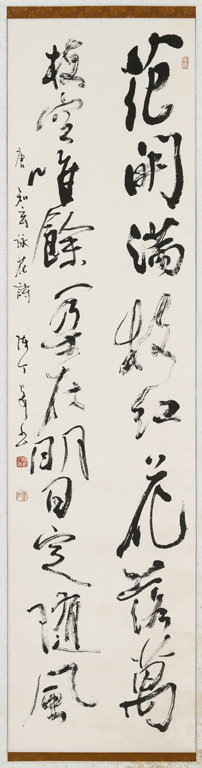 花開滿枝紅花落萬
枝空唯餘一朵在明日定隨風
唐 知玄詠花詩